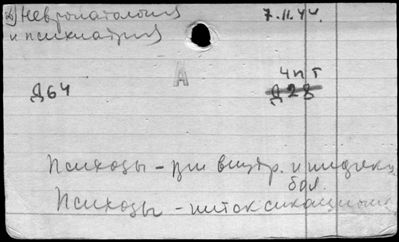 Невропатология 7.11.44.
и психиатрия
А
4 п т
Д64 Д28
Психозы – при внутр. и инфекц.
бол.
Психозы – интоксикационные